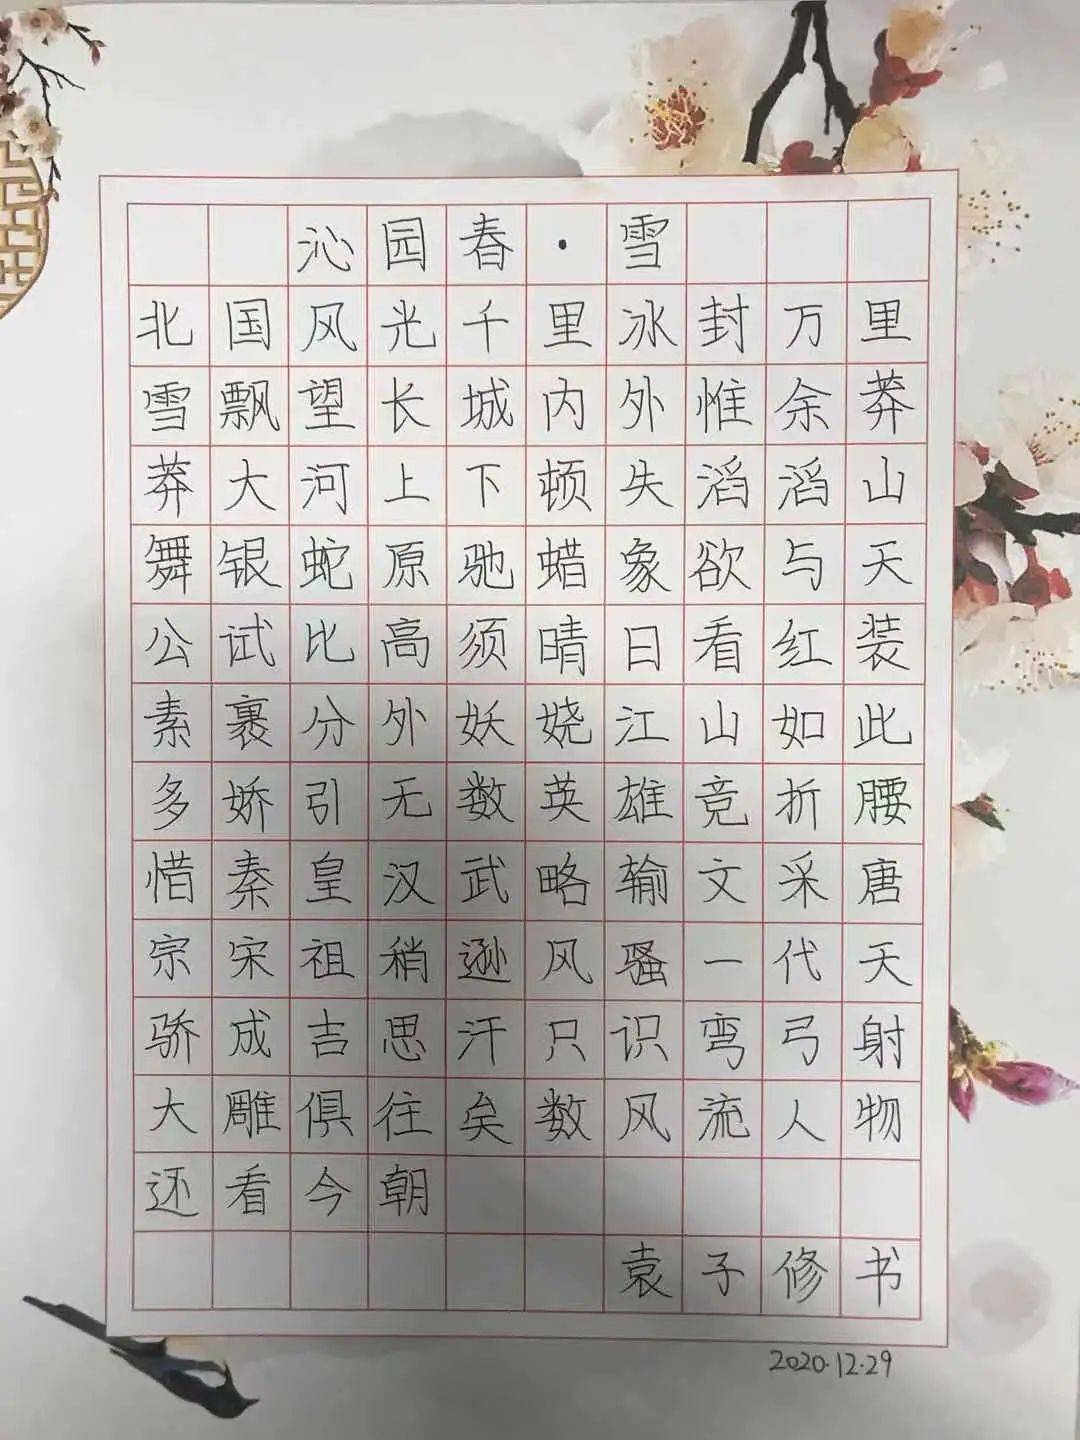 沁园春·雪
北国风光千里冰封万里
雪飘望长城内外惟余莽
莽大河上下顿失滔滔山
舞银蛇原驰蜡象欲与天
公试比高须晴日看红装
素裹分外妖娆江山如此
多娇引无数英雄竞折腰
惜秦皇汉武略输文采唐
宗宋祖稍逊风骚一代天
骄成吉思汗只识弯弓射
大雕俱往矣数风流人物
还看今朝
袁子修书
2020.12.29